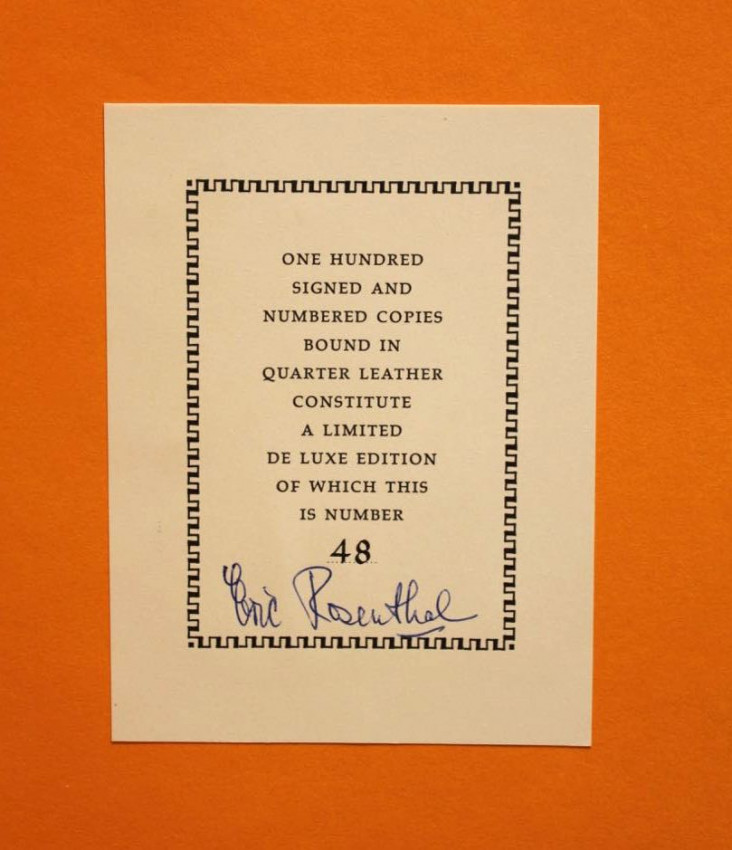 ONE HUNDRED
SIGNED AND
NUMBERED COPIES
BOUND IN
QUARTER LEATHER
CONSTITUTE
A LIMITED
DE LUXE EDITION
OF WHICH THIS
IS NUMBER
48
Eric Rosenthal